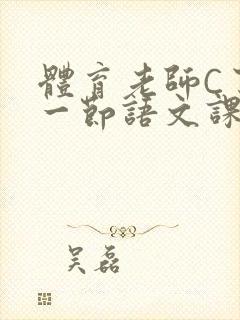 體育老師C
一節語文課
吴磊